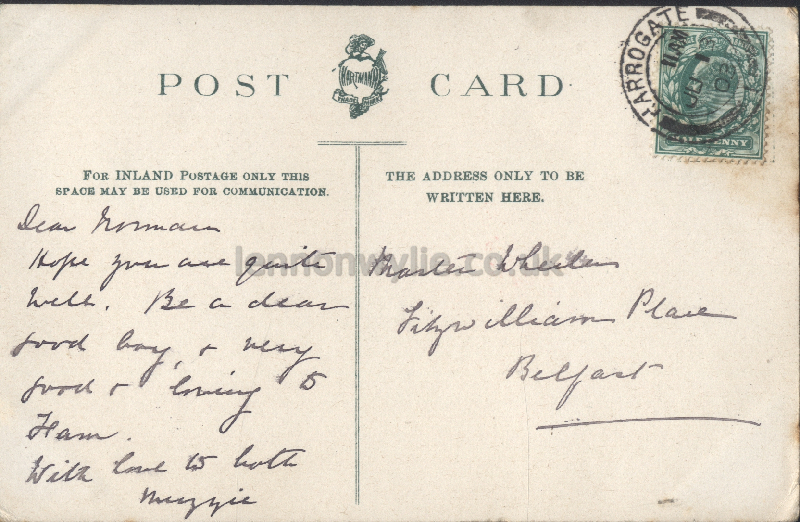 POST CARD
HARTMANN
TRADE MARK
HARROGATE
HALFPENNY
FOR INLAND POSTAGE ONLY THIS
SPACE MAY BE USED FOR COMMUNICATION.
THE ADDRESS ONLY TO BE
WRITTEN HERE.
Dear Norman
Hope you are quite
well. Be a dear
good boy, & very
good & loving to
Ham.
With love to both
Muzzie
Master Wheeler
Fitzwilliam Place
Belfast
lennonwylie.co.uk